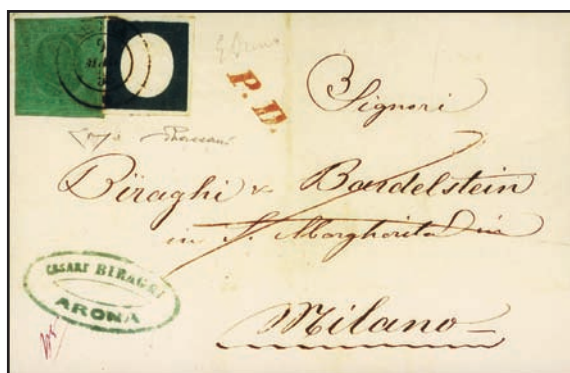 P. D.
Signori
Biraghi & Bardelstein
in S. Margherita
Milano
CESARE BIRAGHI
ARONA